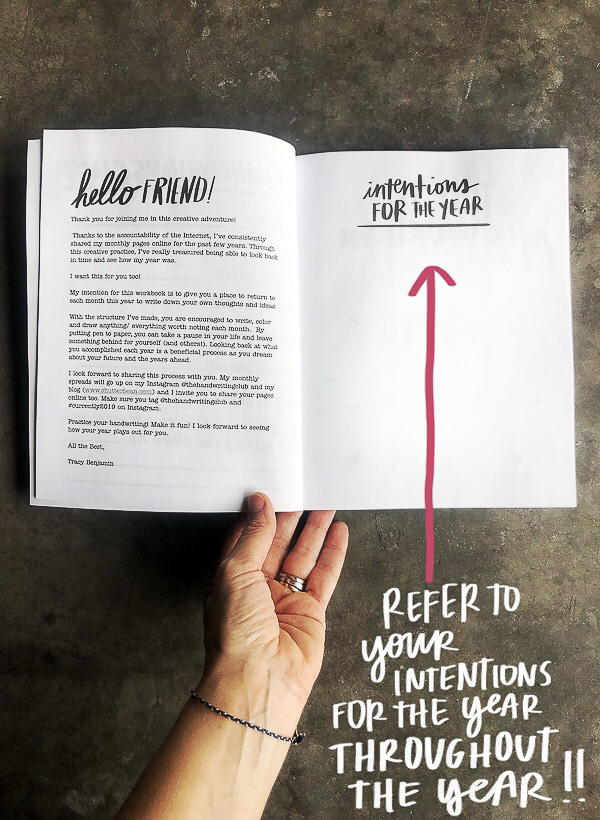 hello FRIEND!
Thank you for joining me in this creative adventure!
Thanks to the accountability of the Internet, I've consistently
shared my monthly pages online for the past few years. Through
this creative practice, I've really treasured being able to look back
in time and see how my year was.
I want this for you too!
My intention for this workbook is to give you a place to return to
each month this year to write down your own thoughts and ideas.
With the structure I've made, you are encouraged to write, color
and draw anything/ everything worth noting each month. By
putting pen to paper, you can take a pause in your life and leave
something behind for yourself (and others!). Looking back at what
you accomplished each year is a beneficial process as you dream
about your future and the years ahead.
I look forward to sharing this process with you. My monthly
spreads will go up on my Instagram @thehandwritingclub and my
blog (www.shutterbean.com) and I invite you to share your pages
online too. Make sure you tag @thehandwritingclub and
#currently2019 on Instagram.
Practice your handwriting! Make it fun! I look forward to seeing
how your year plays out for you.
All the Best,
Tracy Benjamin
intentions
FOR THE YEAR
REFER TO
your
INTENTIONS
FOR THE YEAR
THROUGHOUT
THE YEAR!!